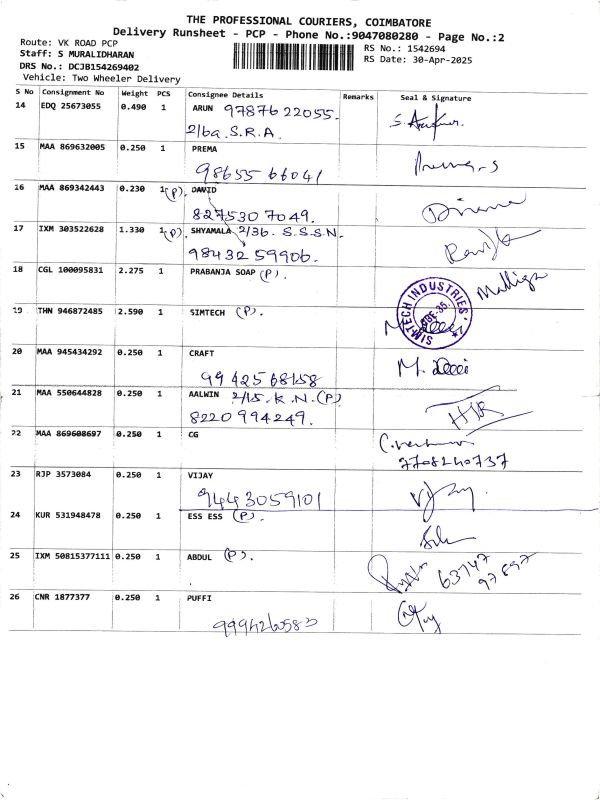 THE PROFESSIONAL COURIERS, COIMBATORE
Delivery Runsheet - PCP - Phone No.:9047080280 - Page No.:2
Route: VK ROAD PCP
Staff: S MURALIDHARAN
DRS No.: DCJB154269402
Vehicle: Two Wheeler Delivery
RS No.: 1542694
RS Date: 30-Apr-2025
S No Consignment No Weight PCS Consignee Details Remarks Seal & Signature
14 EDQ 25673055 0.490 1 ARUN 9787622055.
2/6a S.R.A.
15 MAA 869632005 0.250 1 PREMA
98655 66041 Prema.S
16 MAA 869342443 0.230 1 (P). DAVID
827530 7049.
17 IXM 303522628 1.330 1 (P). SHYAMALA 2/36. S.S.S.N.
98432 59906.
18 CGL 100095831 2.275 1 PRABANJA SOAP (P). Malliga
19 THN 946872485 2.590 1 SIMTECH (P).
SIM-TECH INDUSTRIES
20 MAA 945434292 0.250 1 CRAFT
9942568158
21 MAA 550644828 0.250 1 AALWIN 2/15. K.N. (P)
8220 994249.
22 MAA 869608697 0.250 1 CG
7708240737
23 RJP 3573084 0.250 1 VIJAY
9443059101 Vijay.
24 KUR 531948478 0.250 1 ESS ESS (P).
25 IXM 50815377111 0.250 1 ABDUL (P).
63747
97897
26 CNR 1877377 0.250 1 PUFFI